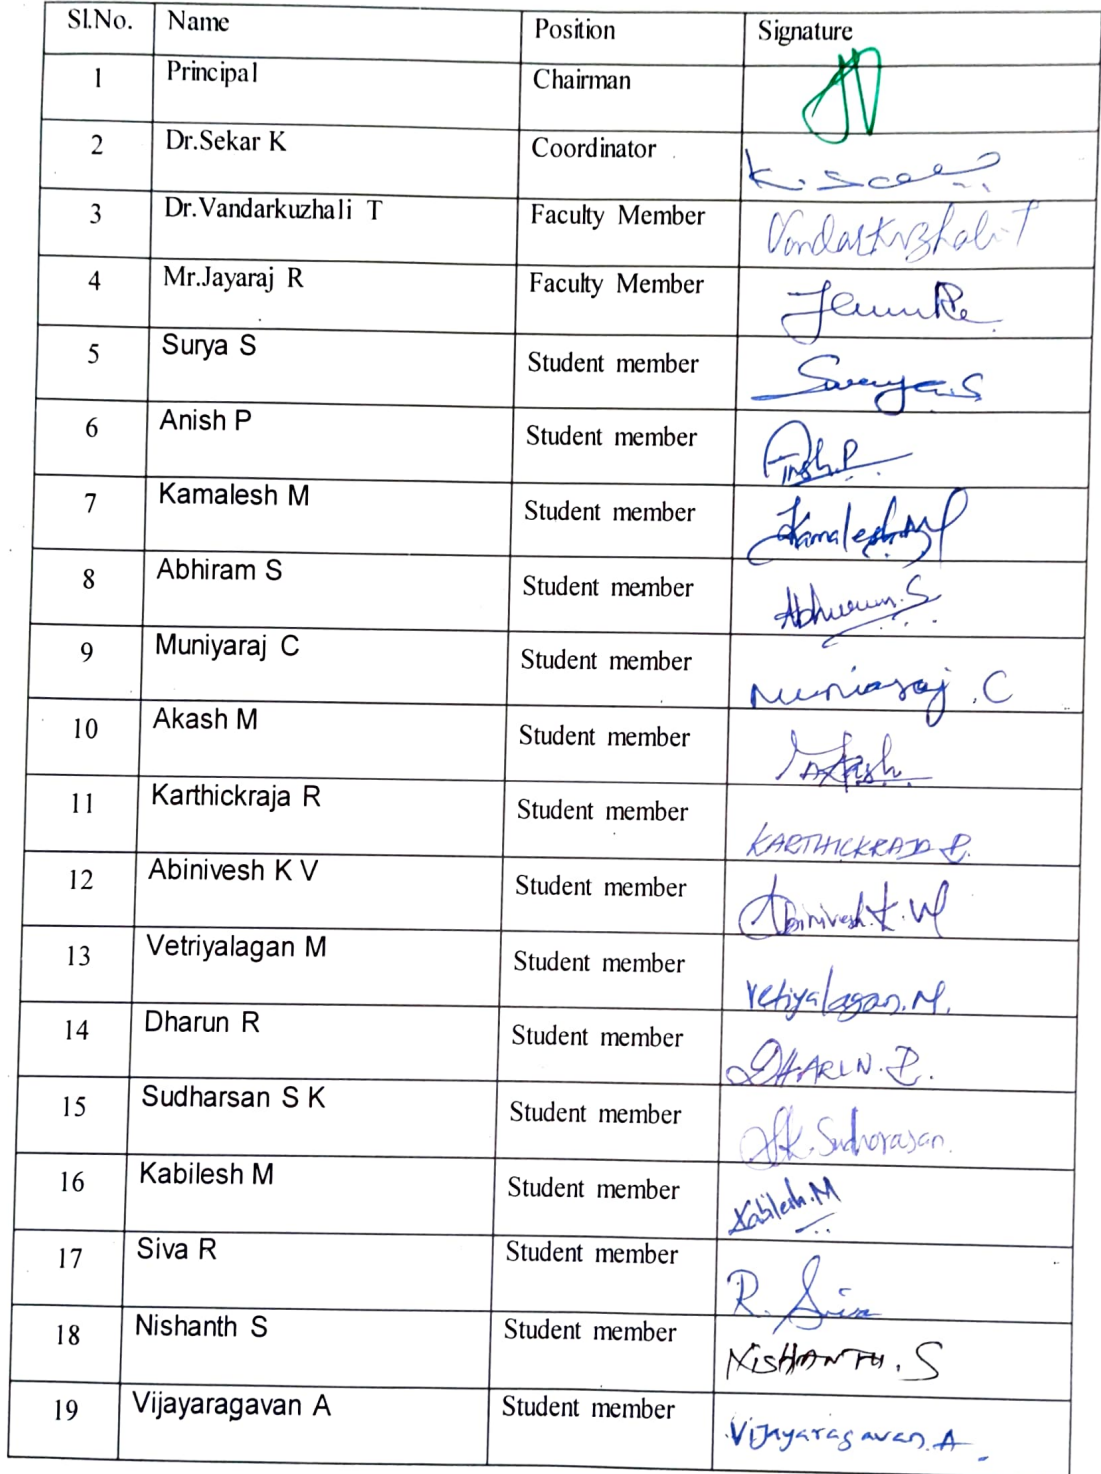 Sl.No. Name Position Signature
1 Principal Chairman
2 Dr.Sekar K Coordinator
3 Dr.Vandarkuzhali T Faculty Member Vandarkuzhali T
4 Mr.Jayaraj R Faculty Member
5 Surya S Student member Surya.S
6 Anish P Student member Anish.P
7 Kamalesh M Student member Kamalesh.M
8 Abhiram S Student member Abhiram.S
9 Muniyaraj C Student member Muniasraj .C
10 Akash M Student member M.Akash
11 Karthickraja R Student member KARTHICKRAJA R.
12 Abinivesh K V Student member Abinivesh.K.V
13 Vetriyalagan M Student member Vetiyalagan.M.
14 Dharun R Student member DHARUN.R.
15 Sudharsan S K Student member S.K.Sudharasan.
16 Kabilesh M Student member Kabilesh.M
17 Siva R Student member R. Siva
18 Nishanth S Student member NISHANTH.S
19 Vijayaragavan A Student member Vijayaragavan.A